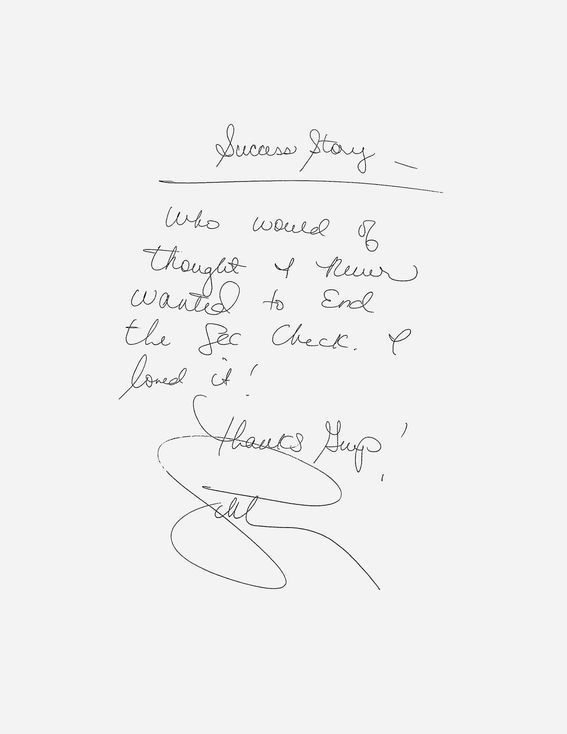 Success Story —
Who would of
thought I Never
wanted to End
the Sec Check. I
loved it!
Thanks Guys!